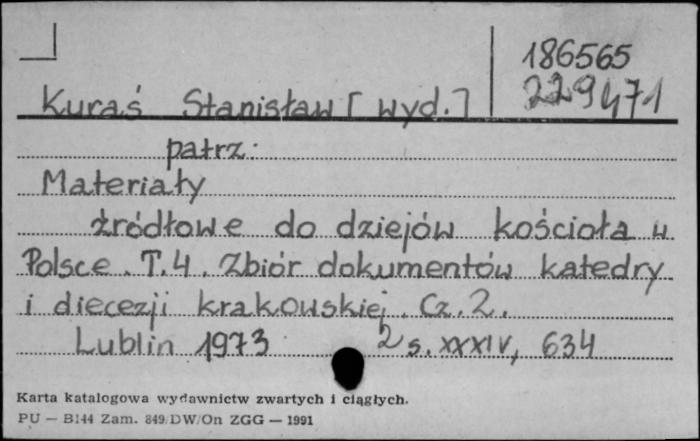 186565
229471
Kuraś Stanisław [wyd.]
patrz:
Materiały
źródłowe do dziejów kościoła w
Polsce. T.4. Zbiór dokumentów katedry
i diecezji krakowskiej. Cz.2.
Lublin 1973 2 s. XXXIV, 634
Karta katalogowa wydawnictw zwartych i ciągłych.
PU — B144 Zam. 849/DW/On ZGG — 1991